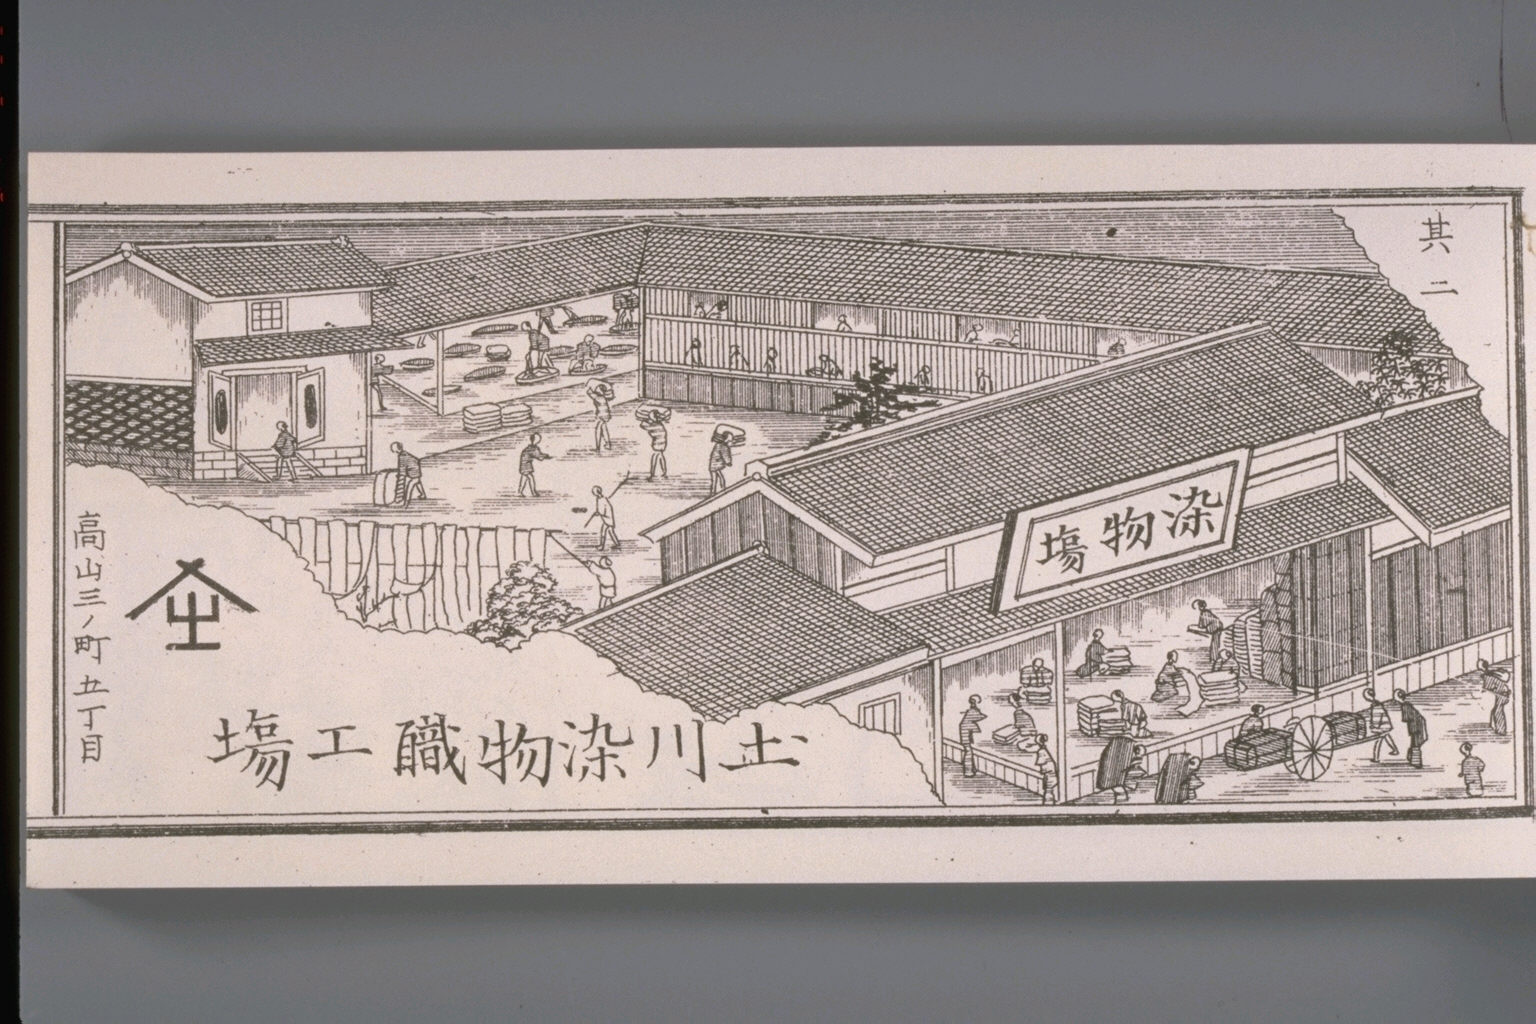 其二
染物塲
圡川染物職工塲
高山三ノ町五丁目